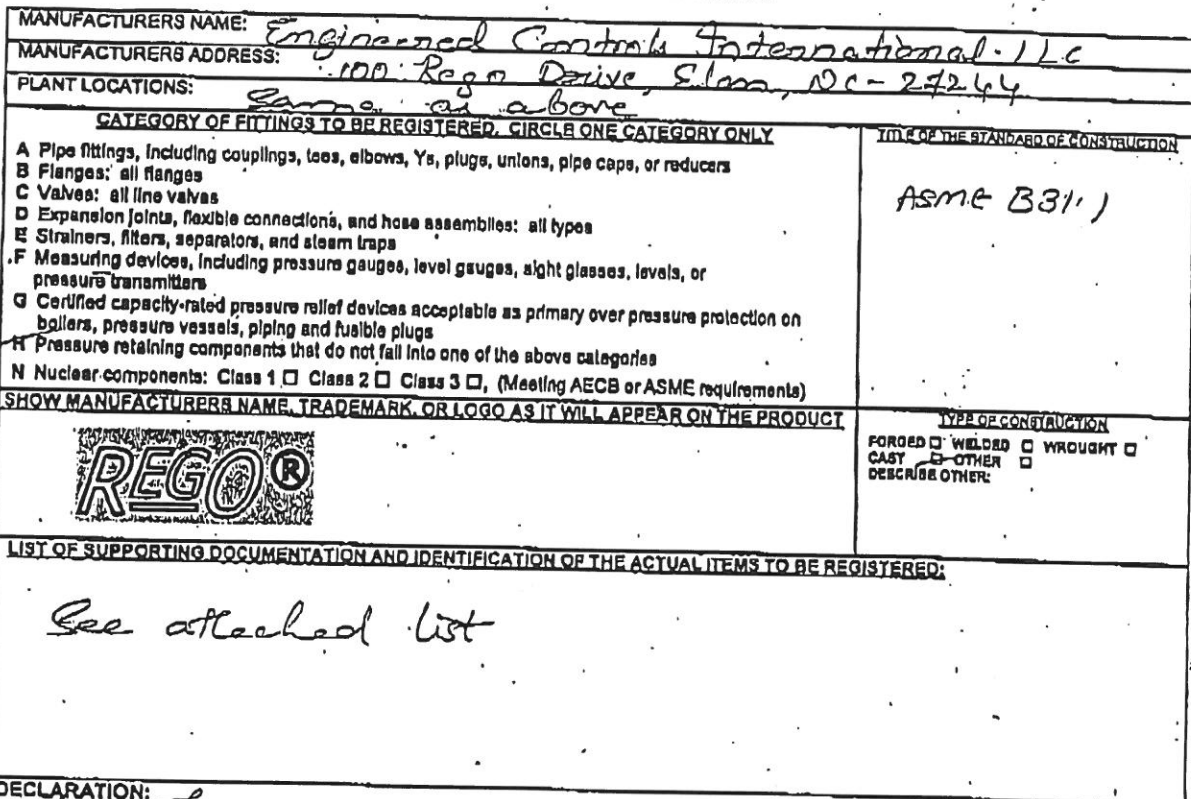 MANUFACTURERS NAME: Engineered Controls International. LLC
MANUFACTURERS ADDRESS: 100 Rego Drive, Elon, NC - 27244
PLANT LOCATIONS: Same as above
CATEGORY OF FITTINGS TO BE REGISTERED. CIRCLE ONE CATEGORY ONLY
A Pipe fittings, including couplings, tees, elbows, Ys, plugs, unions, pipe caps, or reducers
B Flanges: all flanges
C Valves: all line valves
D Expansion joints, flexible connections, and hose assemblies: all types
E Strainers, filters, separators, and steam traps
F Measuring devices, including pressure gauges, level gauges, sight glasses, levels, or
pressure transmitters
G Certified capacity-rated pressure relief devices acceptable as primary over pressure protection on
boilers, pressure vessels, piping and fusible plugs
H Pressure retaining components that do not fall into one of the above categories
N Nuclear components: Class 1 □ Class 2 □ Class 3 □, (Meeting AECB or ASME requirements)
TITLE OF THE STANDARD OF CONSTRUCTION
ASME B31.1
SHOW MANUFACTURERS NAME, TRADEMARK, OR LOGO AS IT WILL APPEAR ON THE PRODUCT
REGO®
TYPE OF CONSTRUCTION
FORGED □ WELDED □ WROUGHT □
CAST □ OTHER □
DESCRIBE OTHER:
LIST OF SUPPORTING DOCUMENTATION AND IDENTIFICATION OF THE ACTUAL ITEMS TO BE REGISTERED:
See attached list
DECLARATION: